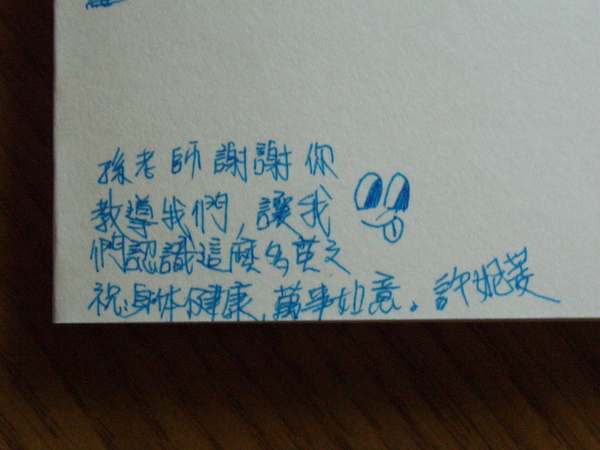 孫老師謝謝你
教導我們,讓我
們認識這麼多英文
祝:身体健康,萬事如意。許妮菱